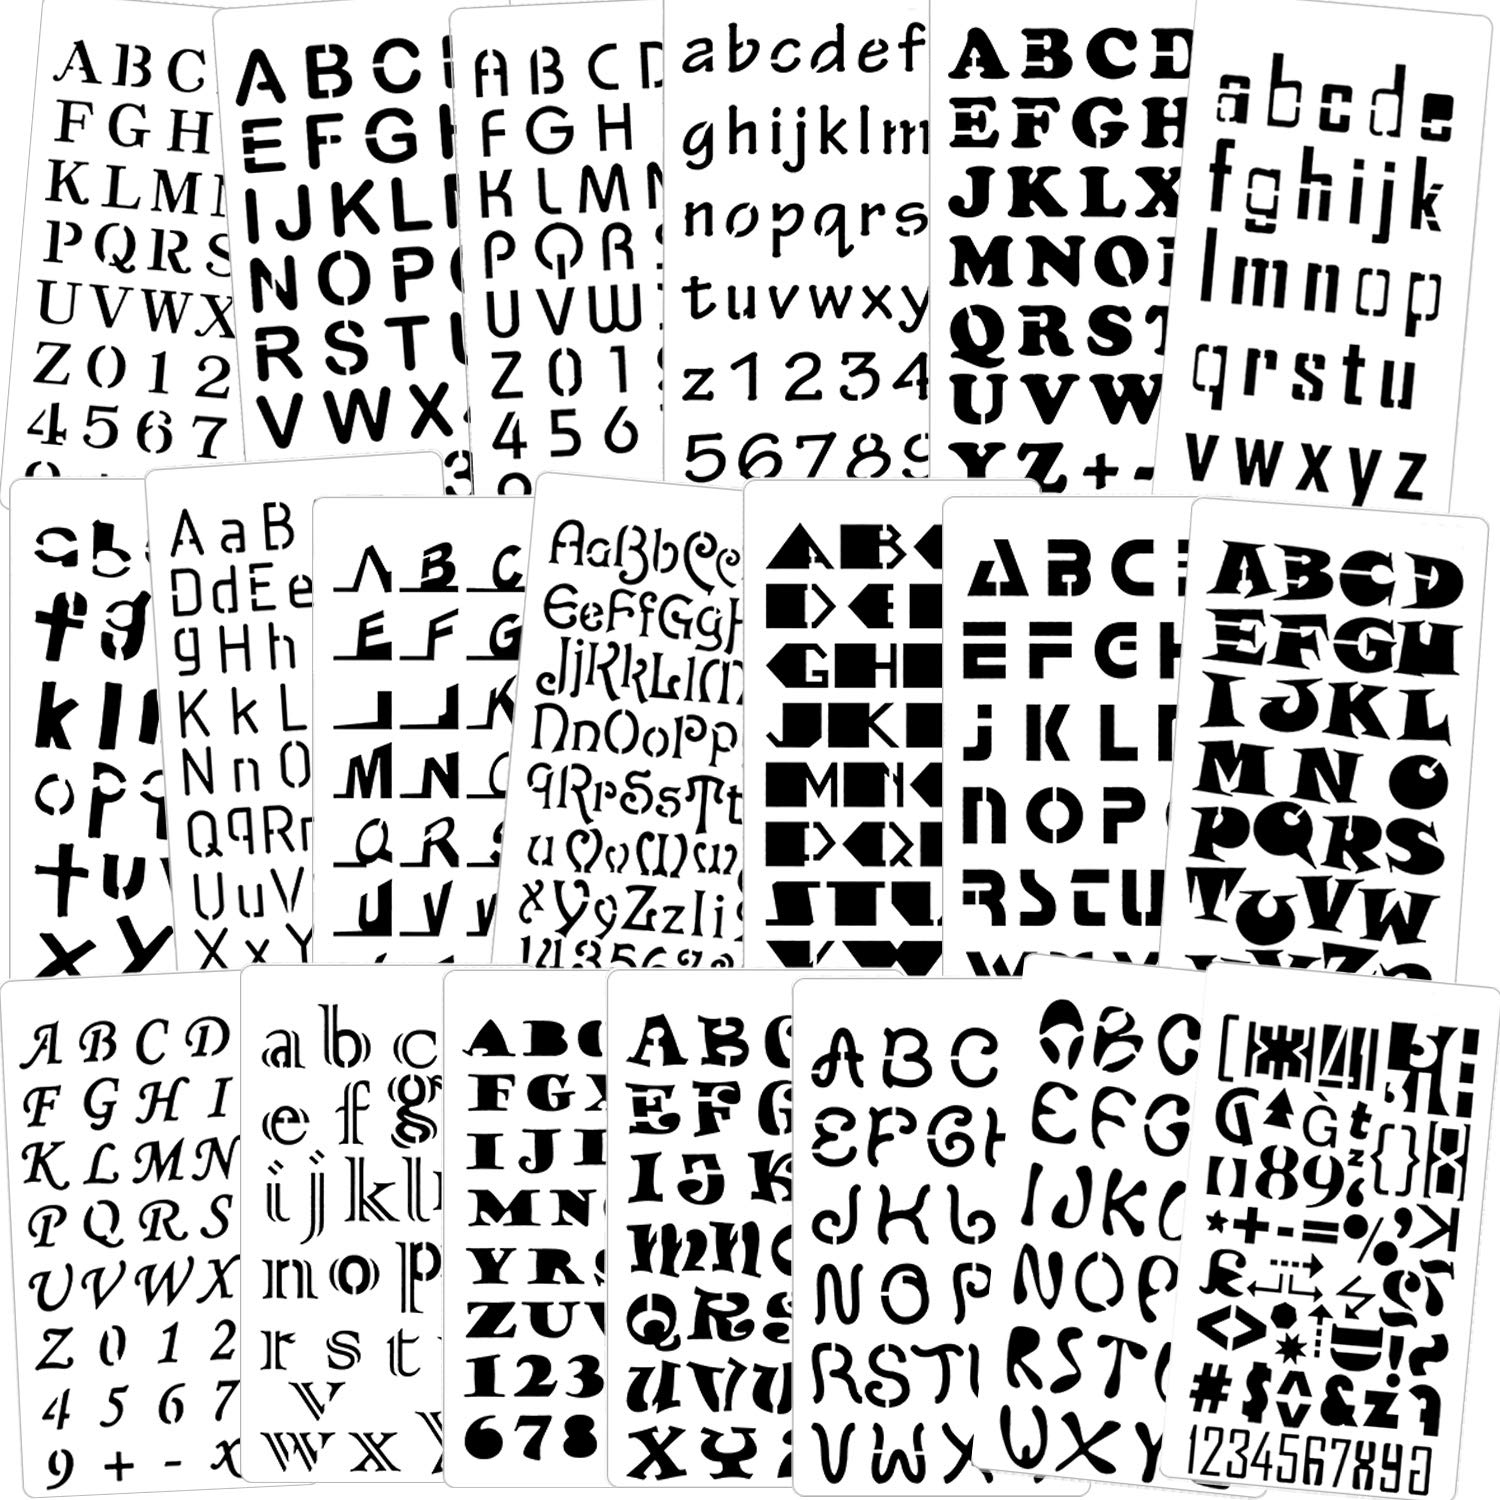 A B C
F G H
K L M
P Q R S
U V W X
Z 0 1 2
4 5 6 7
A B C
E F G
I J K L
N O P
R S T
V W X
3
A B C D
F G H
K L M
P Q R
U V W
Z 0 1
4 5 6
a b c d e f
g h i j k l m
n o p q r s
t u v w x y
z 1 2 3 4
5 6 7 8 9
A B C D
E F G H
J K L X
M N O
Q R S T
U V W
Y Z + -
a b c d e
f g h i j k
l m n o p
q r s t u
v w x y z
a b
f g
k l
o p
t u
x y
A a B
D d E e
g H h
K k L
N n O
Q q R r
U u V
X x Y
A B C
E F G
I J K
M N
Q R S
U V
A a B b C c
E e F f G g
J j K k L l
N n O o P p
q R r S s T t
u
x Y y Z z
A B
D E
G H
J K
M N
S T
A B C
E F G
j K L
n O P
R S T U
A B C D
E F G H
I J K L
M N O
P Q R S
T U V W
A B C D
F G H I
K L M N
P Q R S
U V W X
Z 0 1 2
4 5 6 7
9 + - x
a b c
e f g
i j k l
n o p
r s t
v
w x
A B C
F G
I J
M N
Y R S
Z U V
1 2 3
6 7 8
A B C
E F G
I J K
m n
Q R S
U V U
X Y
A B C
E F G
J K L
N O P
R S T
V W X
A B C
E F G
I J K
N O P
R S T
W X Y
G t
8 9 { }
* + - = % >
£
< >
! ?
# $ & z
1 2 3 4 5 6 7 8 9